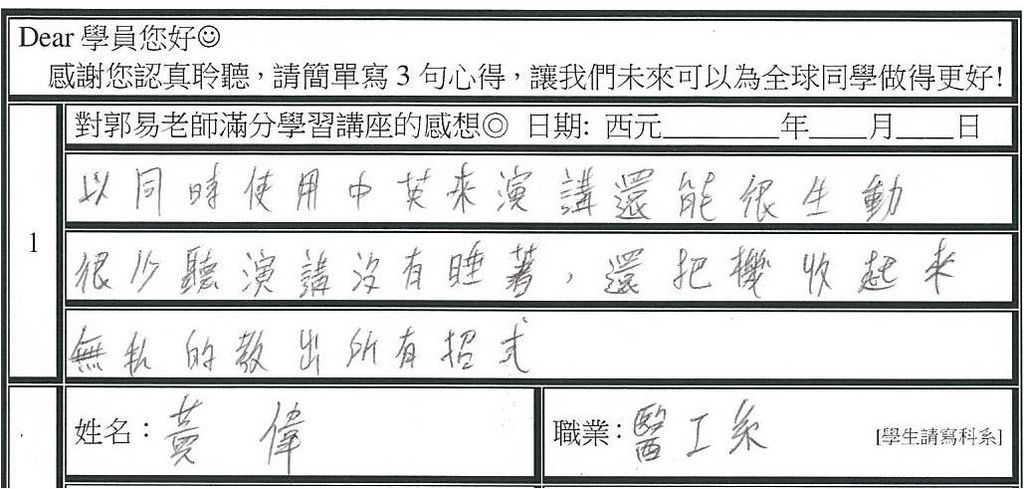 Dear 學員您好☺
感謝您認真聆聽，請簡單寫 3 句心得，讓我們未來可以為全球同學做得更好!
1
對郭易老師滿分學習講座的感想◎ 日期: 西元________年____月____日
以同時使用中英來演講還能很生動
很少聽演講沒有睡著，還把機收起來
無私的教出所有招式
姓名：黃 偉
職業：醫工系 [學生請寫科系]